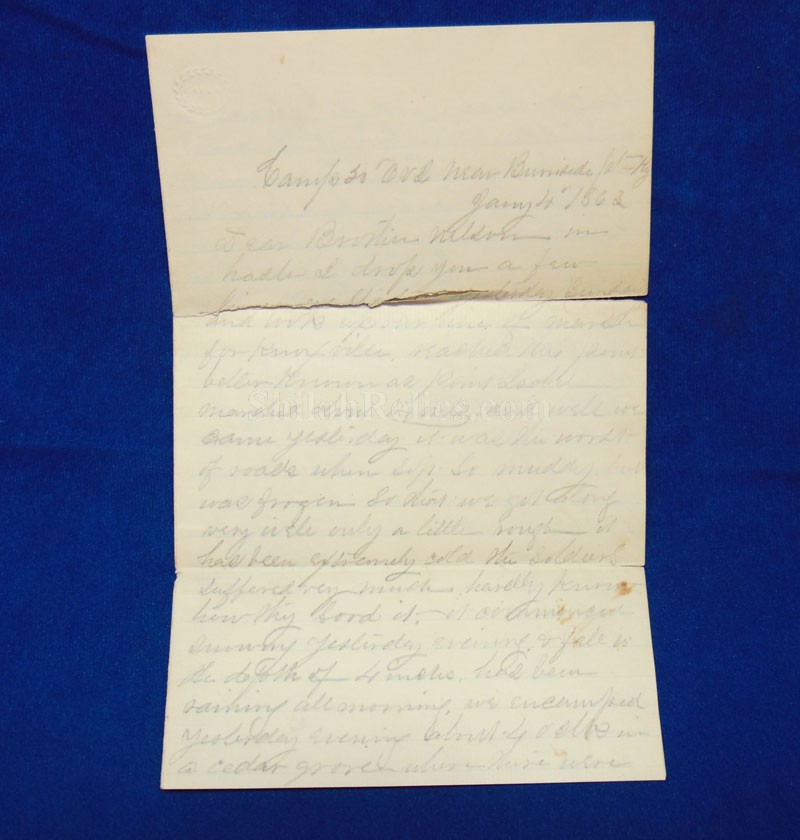 Camp 50" OVI Near Burnside Pt Ky
Jany 4" 1863
Dear Brother Nelson in
haste I drop you a few
lines yesterday Sunday
and took up our line of march
for Knoxville, reached this point
better Known as Point Isabel
marched about miles well we
came yesterday it was the worst
of roads when soft So muddy but
was frozen So that we got along
very well only a little rough it
has been extremely cold the Soldiers
Suffered very much, hardly Know
how they Stood it, it commenced
Snowing yesterday evening, & fell to
the depth of 4 inches, has been
raining all morning, we encamped
yesterday evening about 4 oclk in
a cedar grove where there were
ShilohRelics.com